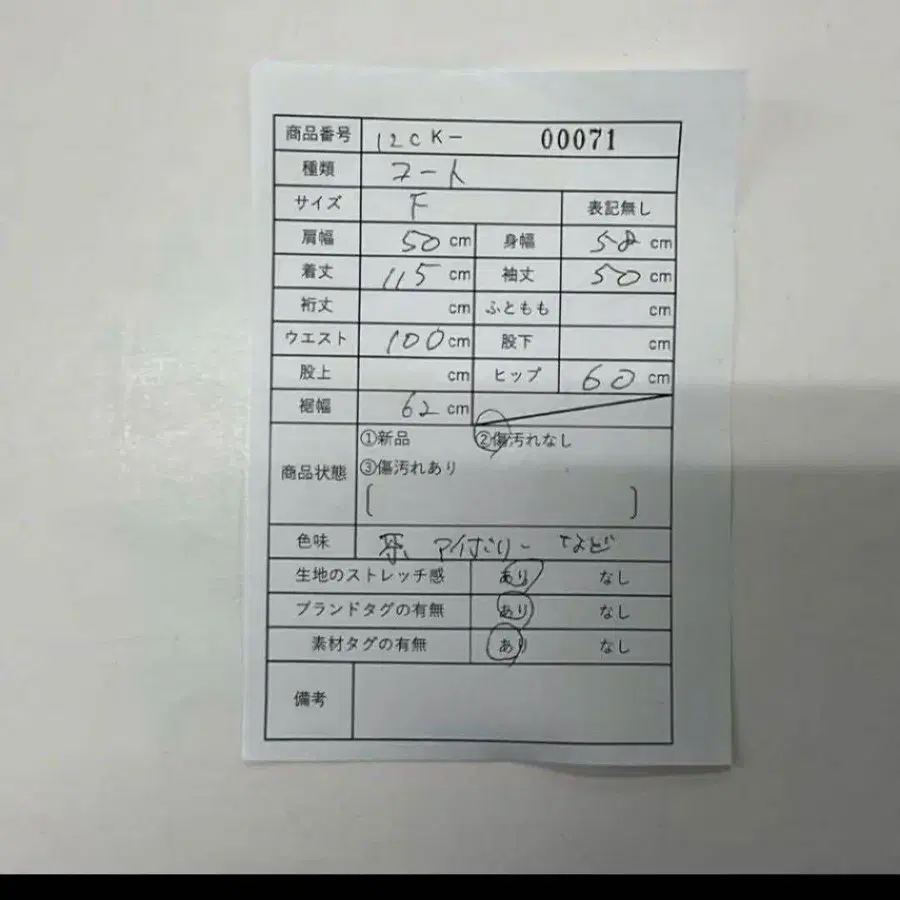 商品番号 12CK- 00071
種類 コート
サイズ F 表記無し
肩幅 50 cm 身幅 58 cm
着丈 115 cm 袖丈 50 cm
裄丈 cm ふともも cm
ウエスト 100 cm 股下 cm
股上 cm ヒップ 60 cm
裾幅 62 cm
①新品 ②傷汚れなし
商品状態 ③傷汚れあり
[ ]
色味 茶 アイボリー など
生地のストレッチ感 あり なし
ブランドタグの有無 あり なし
素材タグの有無 あり なし
備考